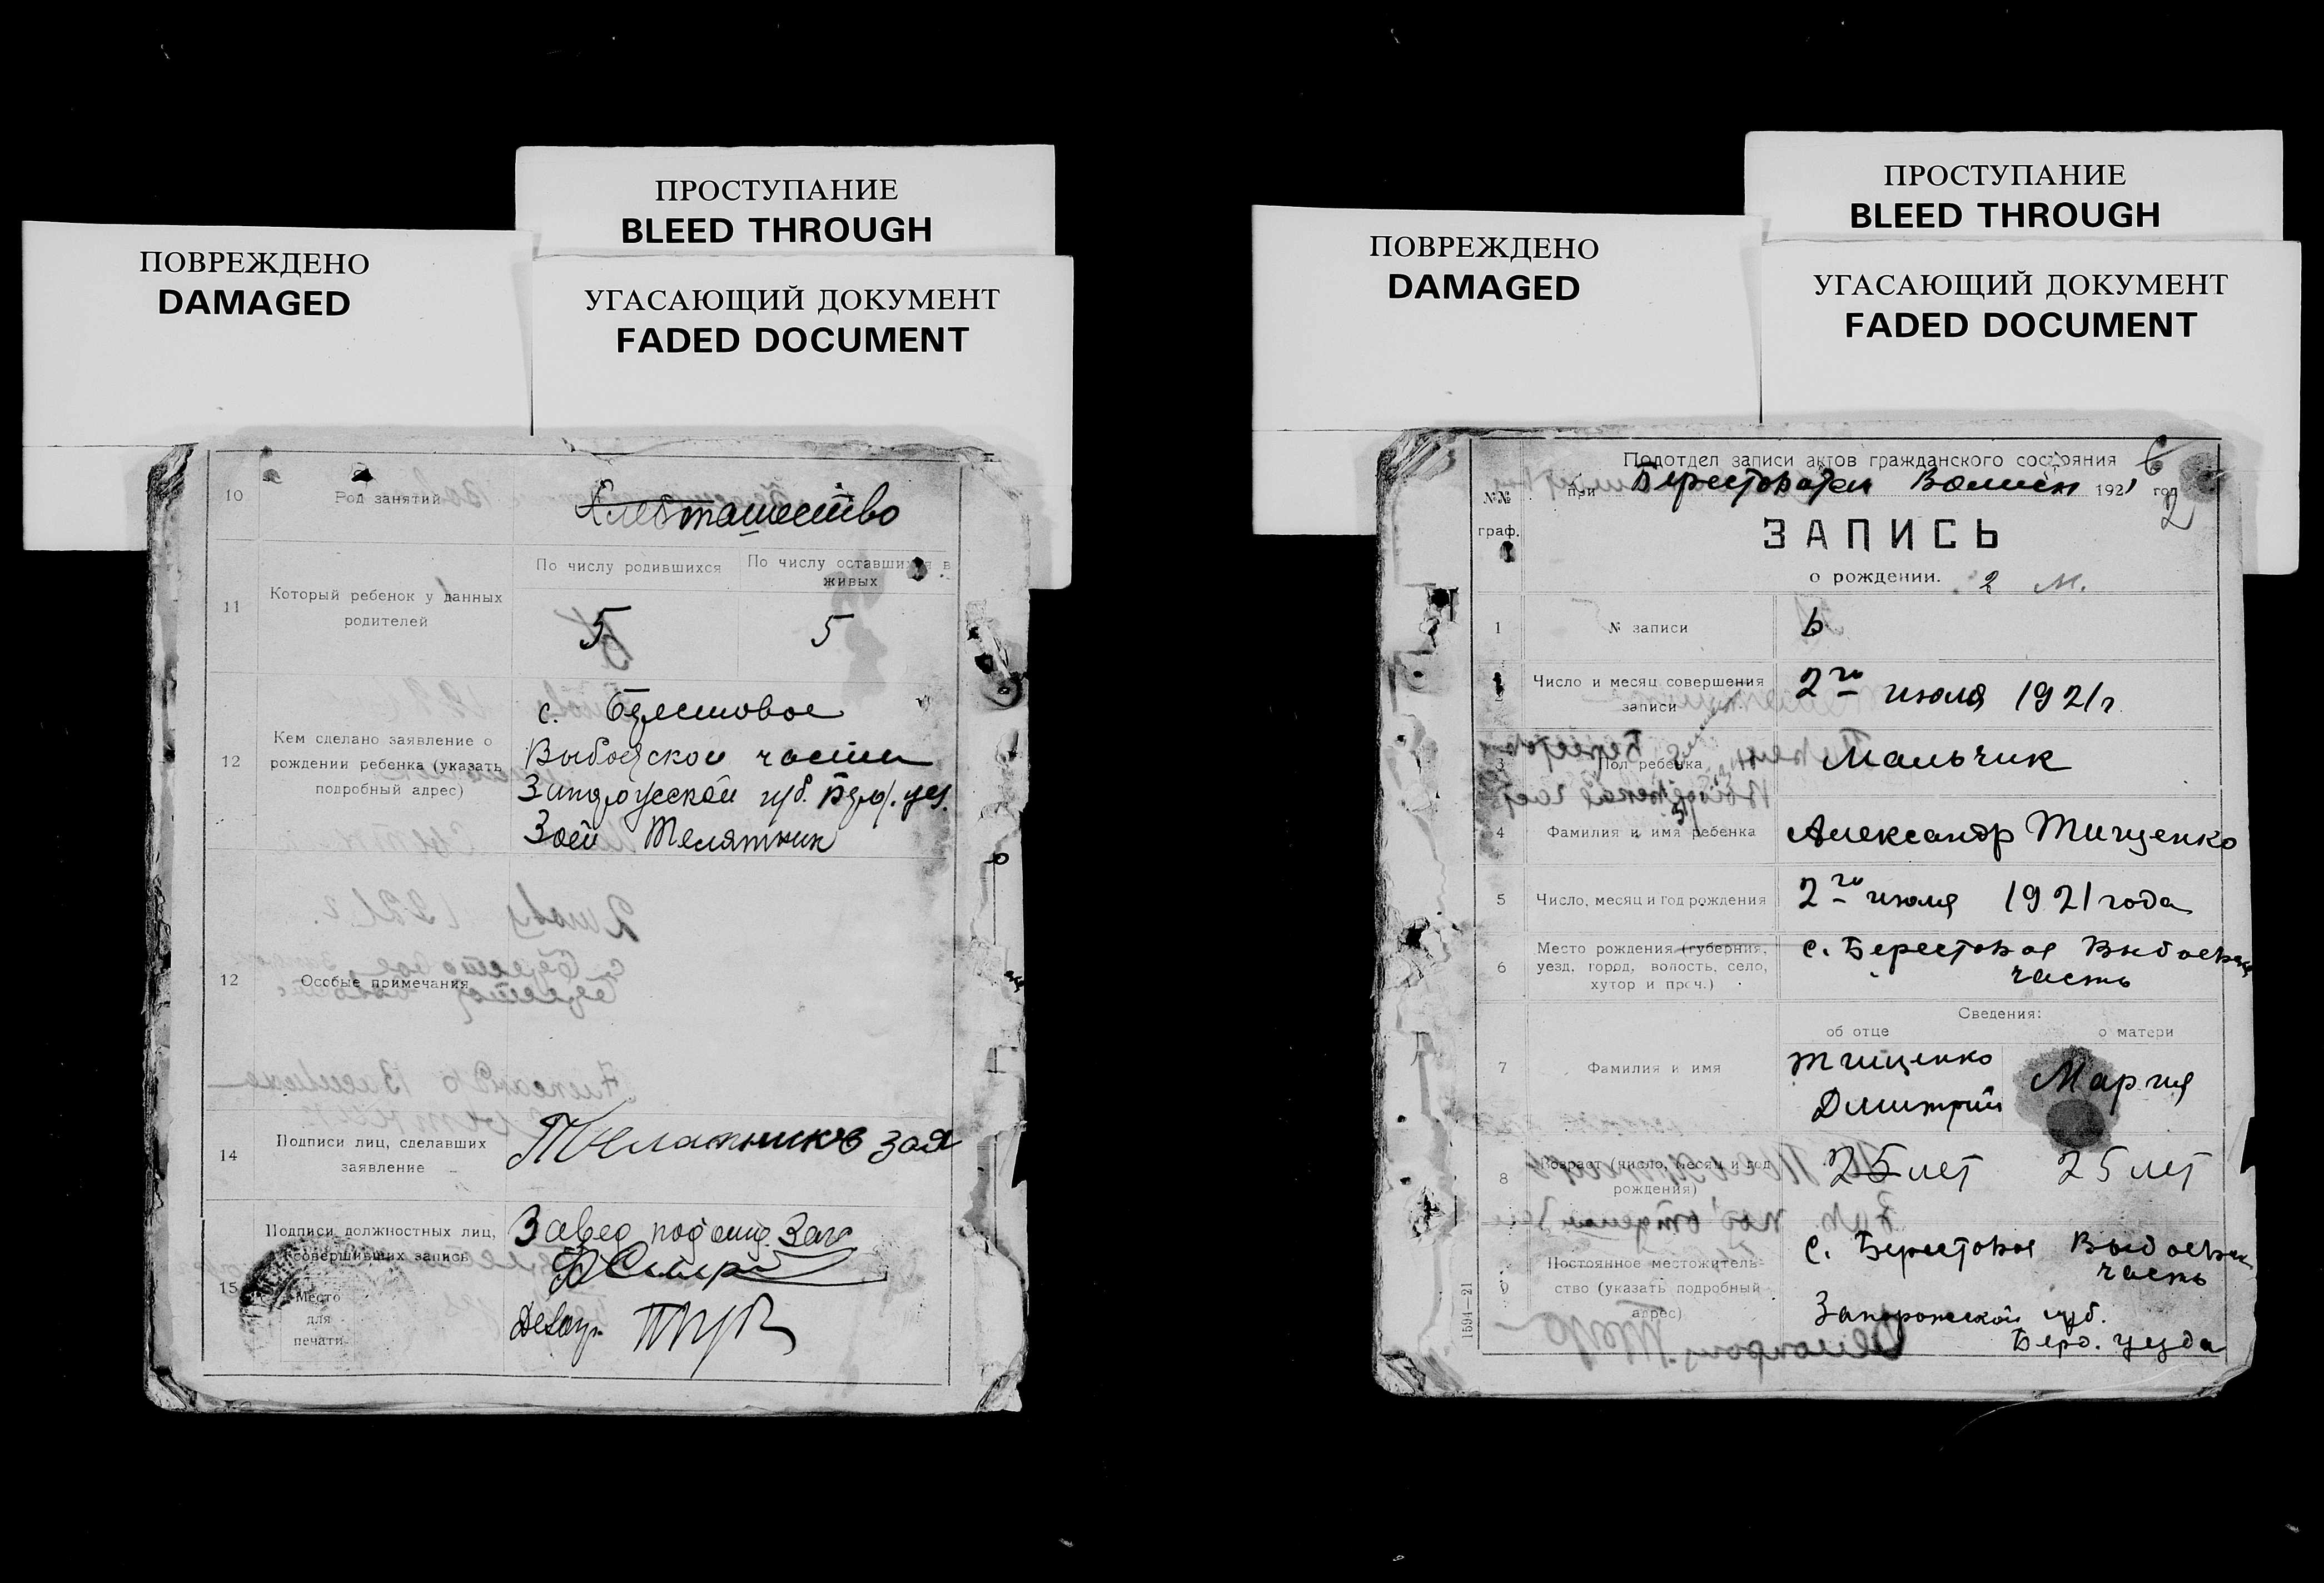 ПРОСТУПАНИЕ
BLEED THROUGH
ПОВРЕЖДЕНО
DAMAGED
УГАСАЮЩИЙ ДОКУМЕНТ
FADED DOCUMENT
10
Род занятий
11
Который ребенок у данных
родителей
По числу родившихся
По числу оставшихся в
живых
5
5
12
Кем сделано заявление о
рождении ребенка (указать
подробный адрес)
с. Берестовое
части
Зоей Телятник
12
Особые примечания
14
Подписи лиц, сделавших
заявление
Зоя
15
Подписи должностных лиц,
совершивших запись
Место
для
печати
Завед
ПРОСТУПАНИЕ
BLEED THROUGH
ПОВРЕЖДЕНО
DAMAGED
УГАСАЮЩИЙ ДОКУМЕНТ
FADED DOCUMENT
Подотдел записи актов гражданского состояния
6
№№
граф.
при
1921 год
2
ЗАПИСЬ
о рождении. 2 м.
1
№ записи
6
2
Число и месяц совершения
записи
2го июля 1921 г.
3
Пол ребенка
Мальчик
4
Фамилия и имя ребенка
Александр Тищенко
5
Число, месяц и год рождения
2го июля 1921 года
6
Место рождения (губерния,
уезд, город, волость, село,
хутор и проч.)
с. Берестовое
часть
Сведения:
об отце
о матери
7
Фамилия и имя
Тищенко
Дмитрий
Мария
8
Возраст (число, месяц и год
рождения)
25 лет
25 лет
9
Постоянное местожитель-
ство (указать подробный
адрес)
с. Берестовое
часть
Запорожской губ.
Берд. уезда
1594—21